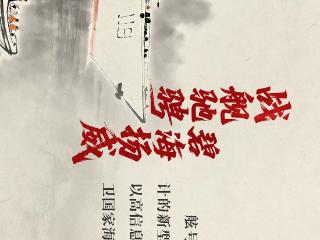 战舰驰骋
碧海扬威
计的新型
以高信息
卫国家海